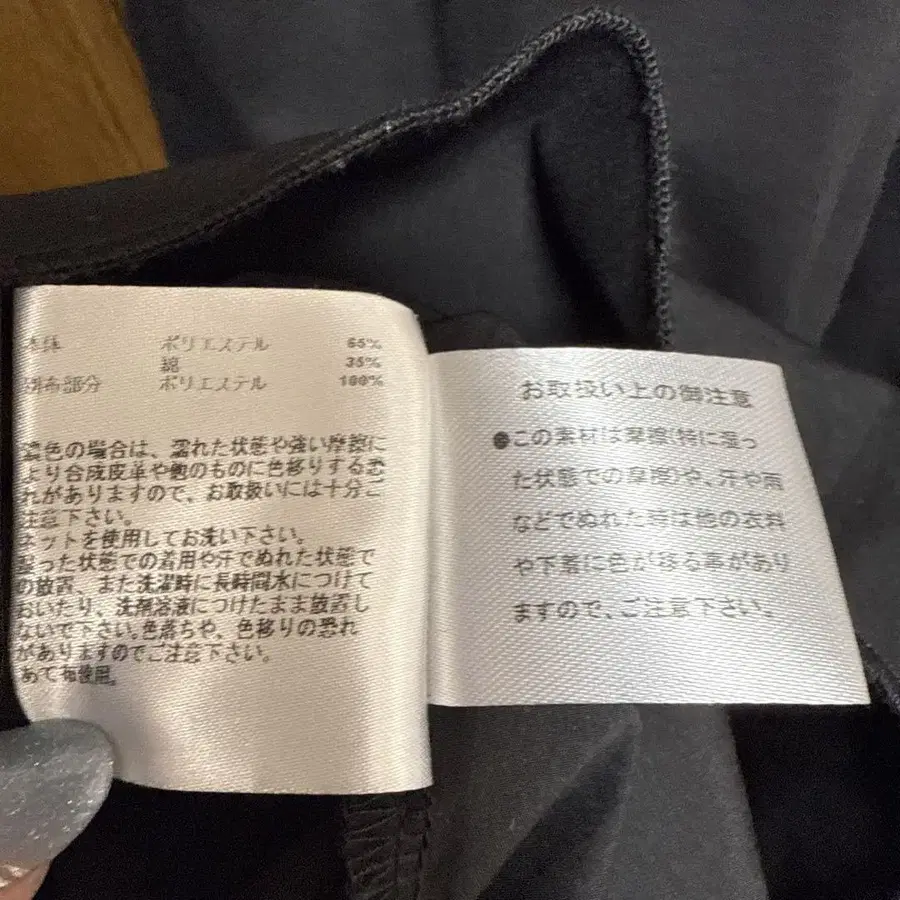 本体 ポリエステル 65%
綿 35%
別布部分 ポリエステル 100%
濃色の場合は、濡れた状態や強い摩擦に
より合成皮革や他のものに色移りする恐
れがありますので、お取扱いには十分ご
注意下さい。
ネットを使用してお洗い下さい。
湿った状態での着用や汗でぬれた状態で
の放置、また洗濯時に長時間水につけて
おいたり、洗剤溶液につけたまま放置し
ないで下さい。色落ちや、色移りの恐れ
がありますのでご注意下さい。
あて布使用。
お取扱い上の御注意
●この素材は摩擦(特に湿っ
た状態での摩擦)や、汗や雨
などでぬれた時は他の衣料
や下着に色が移る事があり
ますので、ご注意下さい。